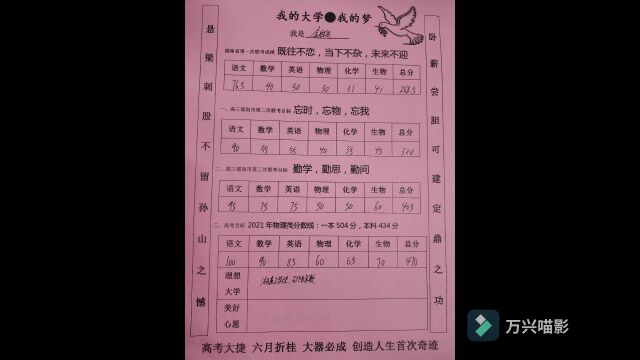 我的大学●我的梦
我是
悬梁刺股不留孙山之憾
卧薪尝胆可建定鼎之功
湖南省第一次联考成绩 既往不恋，当下不杂，未来不迎
语文 数学 英语 物理 化学 生物 总分
76.5 40 50 30 31 41 268.5
一、高三邵阳市第二次联考目标 忘时，忘物，忘我
语文 数学 英语 物理 化学 生物 总分
90 55 55 40 35 45 320
二、高三邵阳市第三次联考目标 勤学，勤思，勤问
语文 数学 英语 物理 化学 生物 总分
95 75 75 50 50 60 405
三、高考目标 2021年物理类分数线：一本504分，本科434分
语文 数学 英语 物理 化学 生物 总分
100 90 85 60 65 70 470
理想大学
美好心愿
高考大捷 六月折桂 大器必成 创造人生首次奇迹
万兴喵影